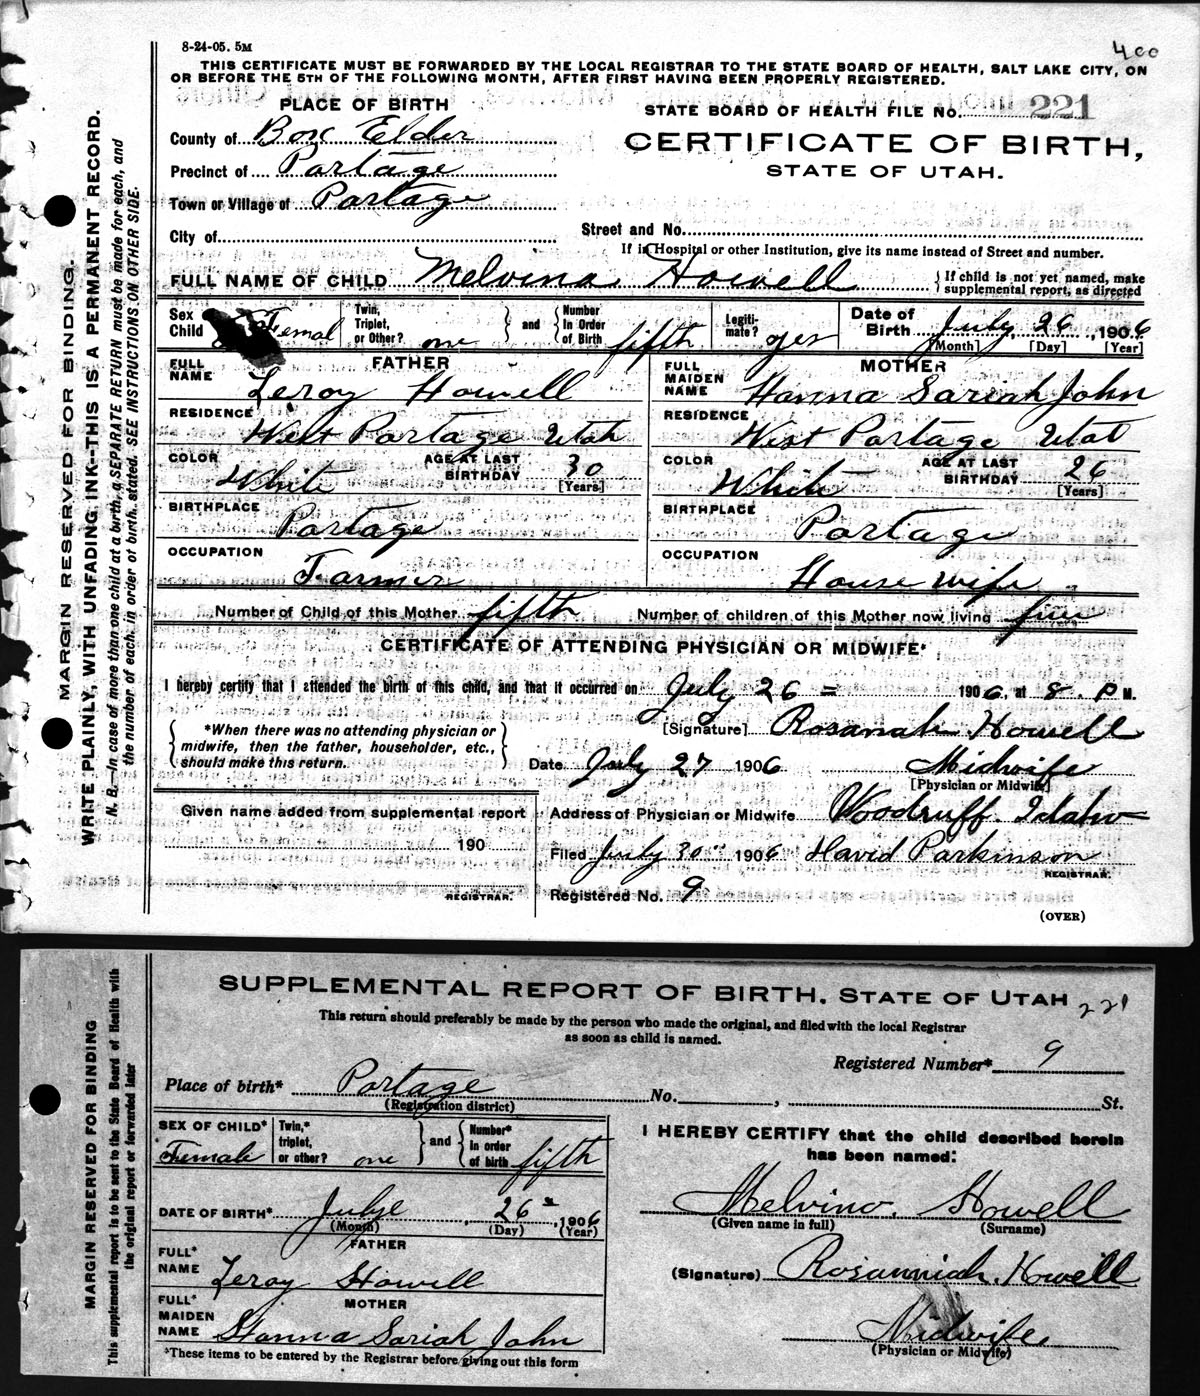 8-24-05. 5M
400
THIS CERTIFICATE MUST BE FORWARDED BY THE LOCAL REGISTRAR TO THE STATE BOARD OF HEALTH, SALT LAKE CITY, ON
OR BEFORE THE 5TH OF THE FOLLOWING MONTH, AFTER FIRST HAVING BEEN PROPERLY REGISTERED.
PLACE OF BIRTH
STATE BOARD OF HEALTH FILE No. 221
County of Box Elder
CERTIFICATE OF BIRTH,
STATE OF UTAH.
Precinct of Portage
Town or Village of Portage
City of
Street and No.
If in Hospital or other Institution, give its name instead of Street and number.
FULL NAME OF CHILD Melvina Howell
{ If child is not yet named, make
supplemental report, as directed
Sex
Child Femal
Twin,
Triplet,
or Other? one
} and {
Number
In Order
of Birth fifth
Legiti-
mate? yes
Date of
Birth July, 26, 1906
[Month] [Day] [Year]
FATHER
FULL
NAME Leroy Howell
RESIDENCE
West Portage Utah
COLOR White
AGE AT LAST
BIRTHDAY 30
[Years]
BIRTHPLACE
Portage
OCCUPATION
Farmer
MOTHER
FULL
MAIDEN
NAME Hanna Sariah John
RESIDENCE
West Portage Utat
COLOR White
AGE AT LAST
BIRTHDAY 26
[Years]
BIRTHPLACE
Portage
OCCUPATION
House wife
Number of Child of this Mother fifth
Number of children of this Mother now living five
CERTIFICATE OF ATTENDING PHYSICIAN OR MIDWIFE*
I hereby certify that I attended the birth of this child, and that it occurred on July 26 = 1906, at 8. P M.
{ *When there was no attending physician or
midwife, then the father, householder, etc.,
should make this return. }
[Signature] Rosannah Howell
Date July 27 1906 Midwife
[Physician or Midwife]
Given name added from supplemental report
190
REGISTRAR.
Address of Physician or Midwife Woodruff. Idaho
Filed July 30 1906 David Parkinson
REGISTRAR.
Registered No. 9
(OVER)
MARGIN RESERVED FOR BINDING.
WRITE PLAINLY, WITH UNFADING INK--THIS IS A PERMANENT RECORD.
N. B.—In case of more than one child at a birth, a SEPARATE RETURN must be made for each, and
the number of each, in order of birth, stated. SEE INSTRUCTIONS ON OTHER SIDE.
SUPPLEMENTAL REPORT OF BIRTH, STATE OF UTAH 221
This return should preferably be made by the person who made the original, and filed with the local Registrar
as soon as child is named.
Registered Number* 9
Place of birth* Portage No. , St.
(Registration district)
SEX OF CHILD*
Female
Twin,*
triplet,
or other? one
} and {
Number*
In order
of birth fifth
DATE OF BIRTH* Julye, 26, 1906
(Month) (Day) (Year)
FATHER
FULL*
NAME Leroy Howell
MOTHER
FULL*
MAIDEN
NAME Hanna Sariah John
*These items to be entered by the Registrar before giving out this form
I HEREBY CERTIFY that the child described herein
has been named:
Melvina. Howell
(Given name in full) (Surname)
(Signature) Rosanniah. Howell
Midwife
(Physician or Midwife)
MARGIN RESERVED FOR BINDING
This supplemental report is to be sent to the State Board of Health with
the original report or forwarded later